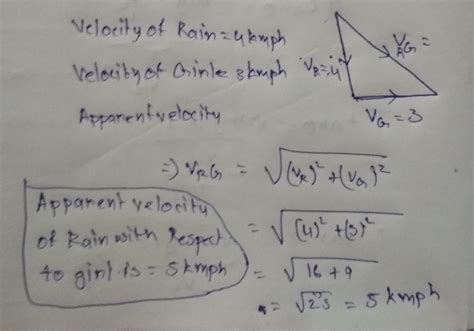 Velocity of Rain = 4 kmph
Velocity of Girl = 3 kmph
Apparent velocity
V_R = 4
V_RG =
V_G = 3
=> V_RG = √(V_R)² + (V_G)²
= √(4)² + (3)²
= √16 + 9
= √25 = 5 kmph
Apparent velocity
of Rain with Respect
to girl is = 5 kmph